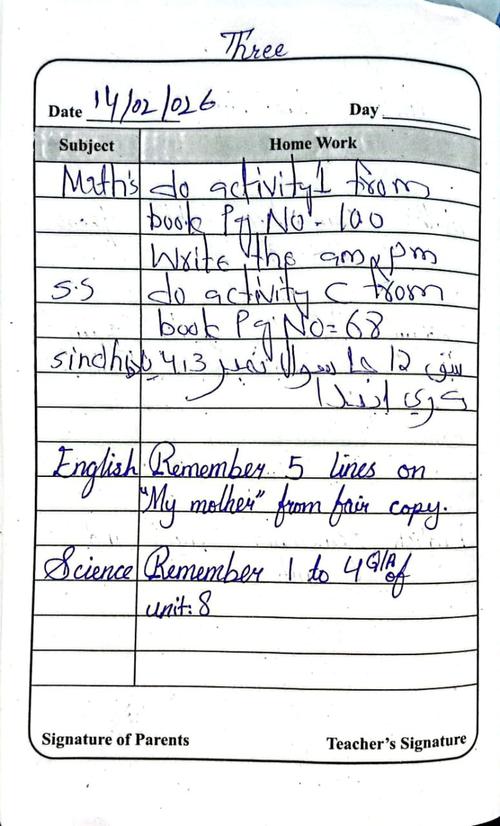 Three
Date 14/02/026 Day
Subject Home Work
Math's do activity 1 from
book Pg No - 100
Write the am & pm
S.S do activity C from
book Pg No = 68
sindhi سبق 12 جا سوال نمبر 3، 4
ڪري ايندا
English Remember 5 lines on
"My mother" from fair copy.
Science Remember 1 to 4 Q/A of
unit: 8
Signature of Parents Teacher's Signature